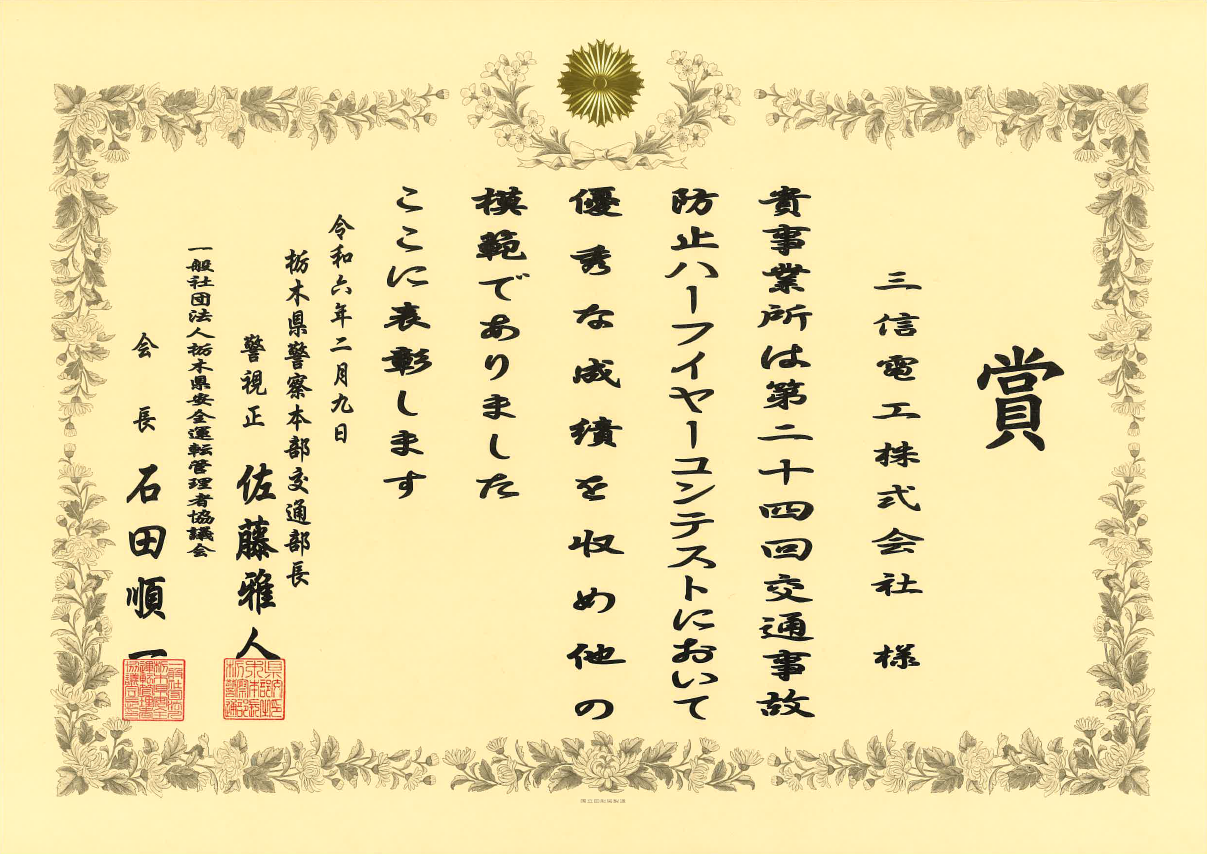 賞
三信電工株式会社 様
貴事業所は第二十四回交通事故
防止ハーフイヤーコンテストにおいて
優秀な成績を収め他の
模範でありました
ここに表彰します
令和六年二月九日
栃木県警察本部交通部長
警視正 佐藤雅人
一般社団法人栃木県安全運転管理者協議会
会長 石田順一